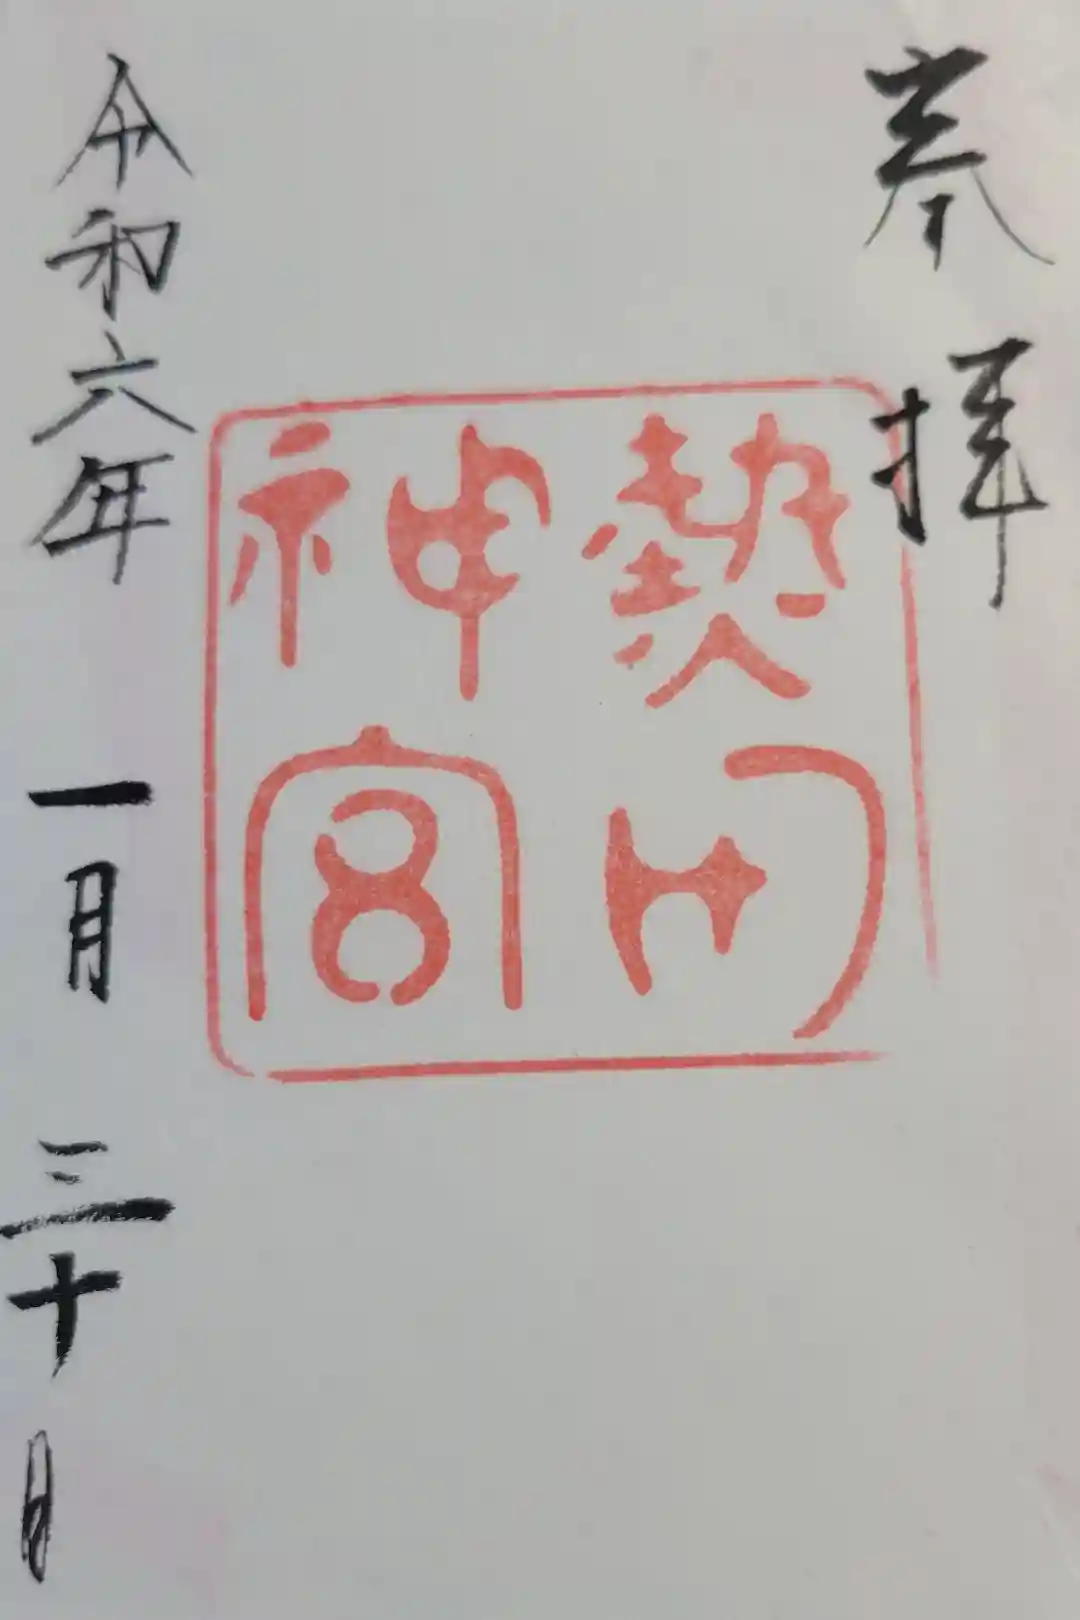 奉拝
熱田
神宮
令和六年一月三十日